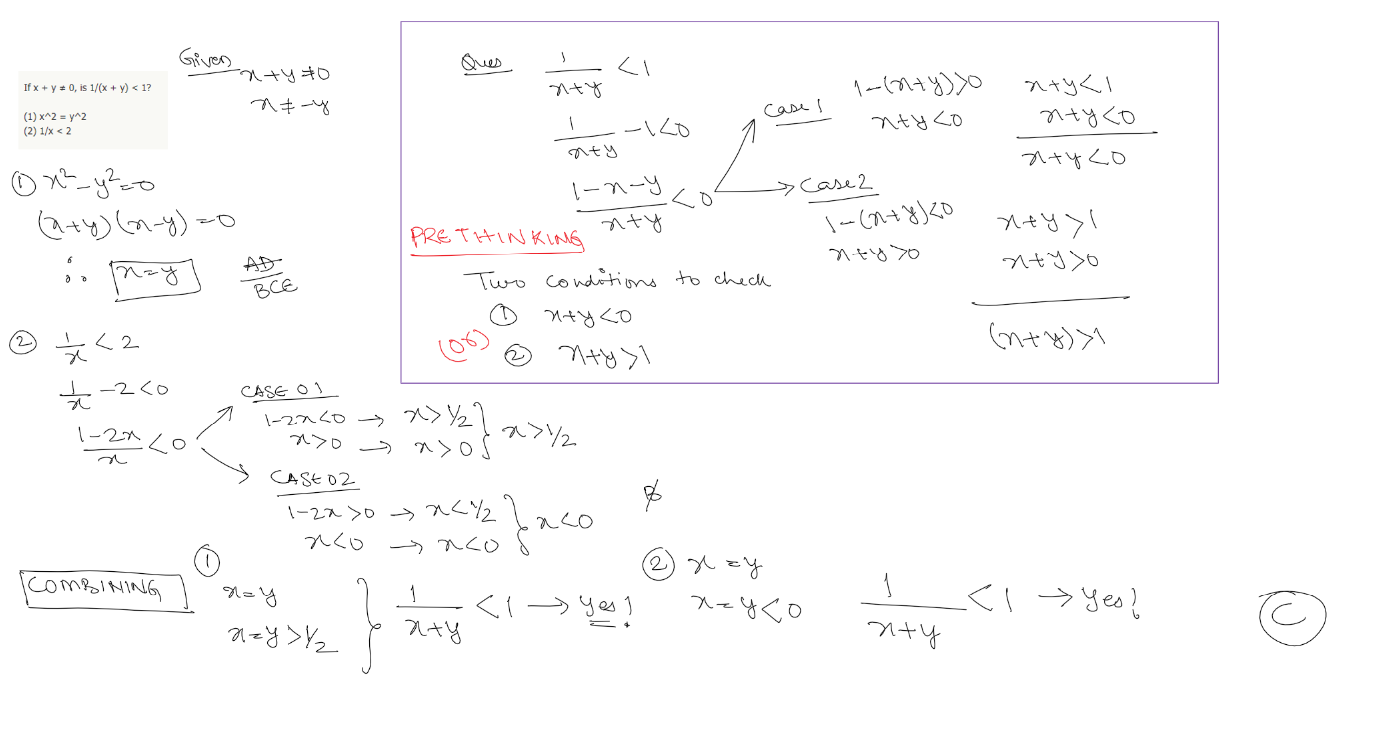 If x + y ≠ 0, is 1/(x + y) < 1?
(1) x^2 = y^2
(2) 1/x < 2
Given
x+y≠0
x≠-y
① x²-y²=0
(x+y)(x-y)=0
∴ x=y
AD
BCE
② 1/x < 2
1/x -2<0
(1-2x)/x < 0
CASE 01
1-2x<0 → x>1/2
x>0 → x>0
} x>1/2
CASE 02
1-2x>0 → x<1/2
x<0 → x<0
} x<0
B
Ques 1/(x+y) < 1
1/(x+y) -1<0
(1-x-y)/(x+y) < 0
Case 1
1-(x+y)>0
x+y<0
x+y<1
x+y<0
x+y<0
Case 2
1-(x+y)<0
x+y>0
x+y>1
x+y>0
(x+y)>1
PRETHINKING
Two conditions to check
① x+y<0
(or)
② x+y>1
COMBINING
①
x=y
x=y>1/2
} 1/(x+y) <1 → yes!
② x=y
x=y<0
1/(x+y) <1 → yes!
C